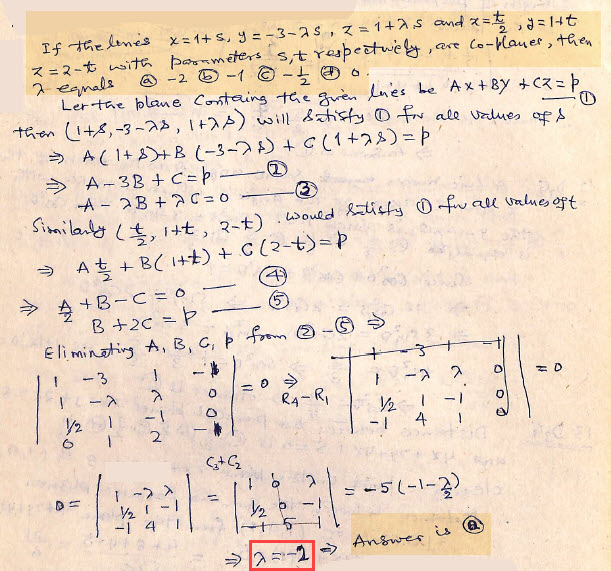 If the lines x=1+s, y=-3-λs, z=1+λs and x=t/2, y=1+t
z=2-t with parameters s,t respectively, are co-planer, then
λ equals ⓐ -2 ⓑ -1 ⓒ -1/2 ⓓ 0.
Let the plane Containg the given lines be Ax+By+Cz=p ①
then (1+s, -3-λs, 1+λs) will satisfy ① for all values of s
⇒ A(1+s)+B(-3-λs)+C(1+λs)=p
⇒ A-3B+C=p ②
A-λB+λC=0 ③
Similarly (t/2, 1+t, 2-t) would satisfy ① for all values of t
⇒ A t/2 + B(1+t) + C(2-t)=p
⇒ A/2 +B-C=0 ④
B+2C=p ⑤
Eliminating A, B, C, p from ②-⑤ ⇒
| 1 -3 1 -1 | | 1 -3 1 -1 |
| 1 -λ λ 0 | =0 ⇒ | 1 -λ λ 0 | =0
| 1/2 1 -1 0 | R4-R1 | 1/2 1 -1 0 |
| 0 1 2 -1 | | -1 4 1 0 |
C3+C2
| 1 -λ λ | | 1 0 λ |
0= | 1/2 1 -1 | = | 1/2 0 -1 | = -5(-1-λ/2)
| -1 4 1 | | -1 5 1 |
⇒ λ=-2 ⇒ Answer is ⓐ